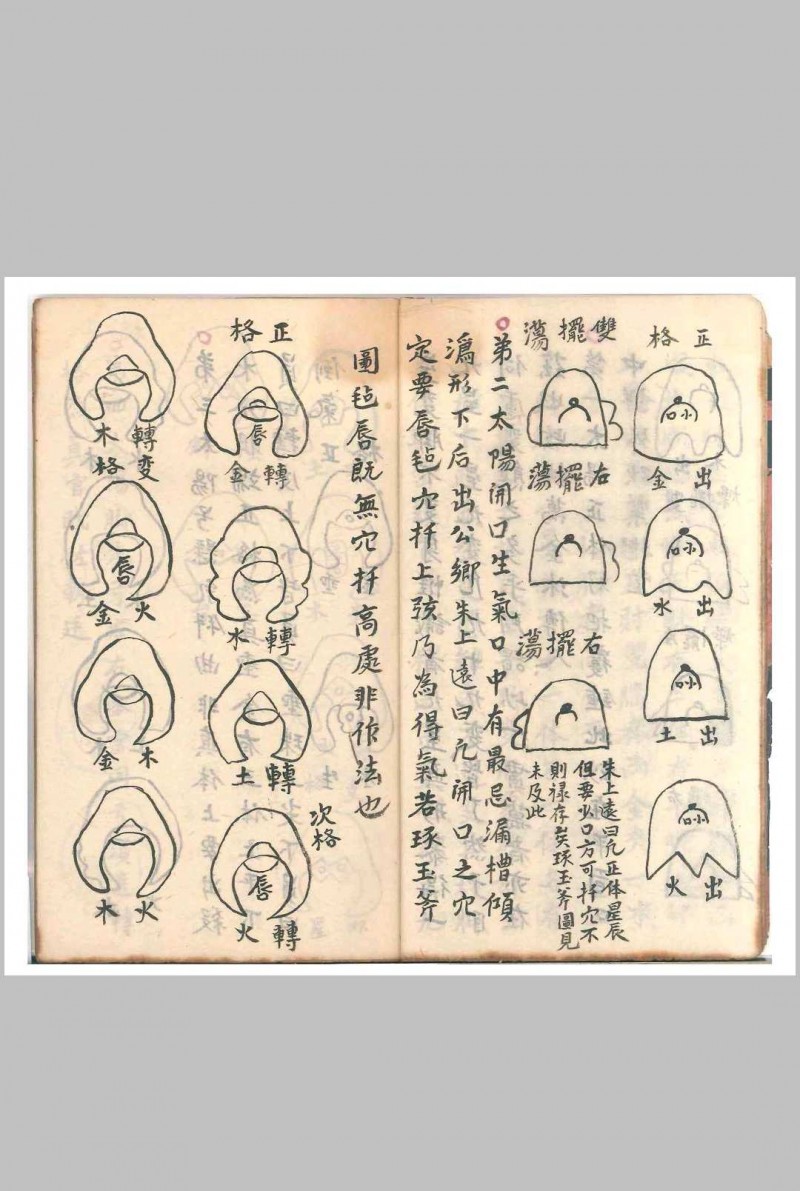 正格
出金
出水
出土
出火
雙擺蕩
右擺蕩
右擺蕩
朱上遠曰凢正体星辰
但要口方可扦穴不
則禄存矣琢玉斧圖見
未及此
弟二太陽開口生氣口中有最忌漏槽傾
瀉形下后出公卿朱上遠曰凢開口之穴
定要唇毡穴扦上弦乃為得氣若琢玉斧
圖毡唇既無穴扦高處非作法也
正格
唇
轉金
轉水
轉土
次格
唇
轉火
轉木
変格
唇
火金
木金
火木